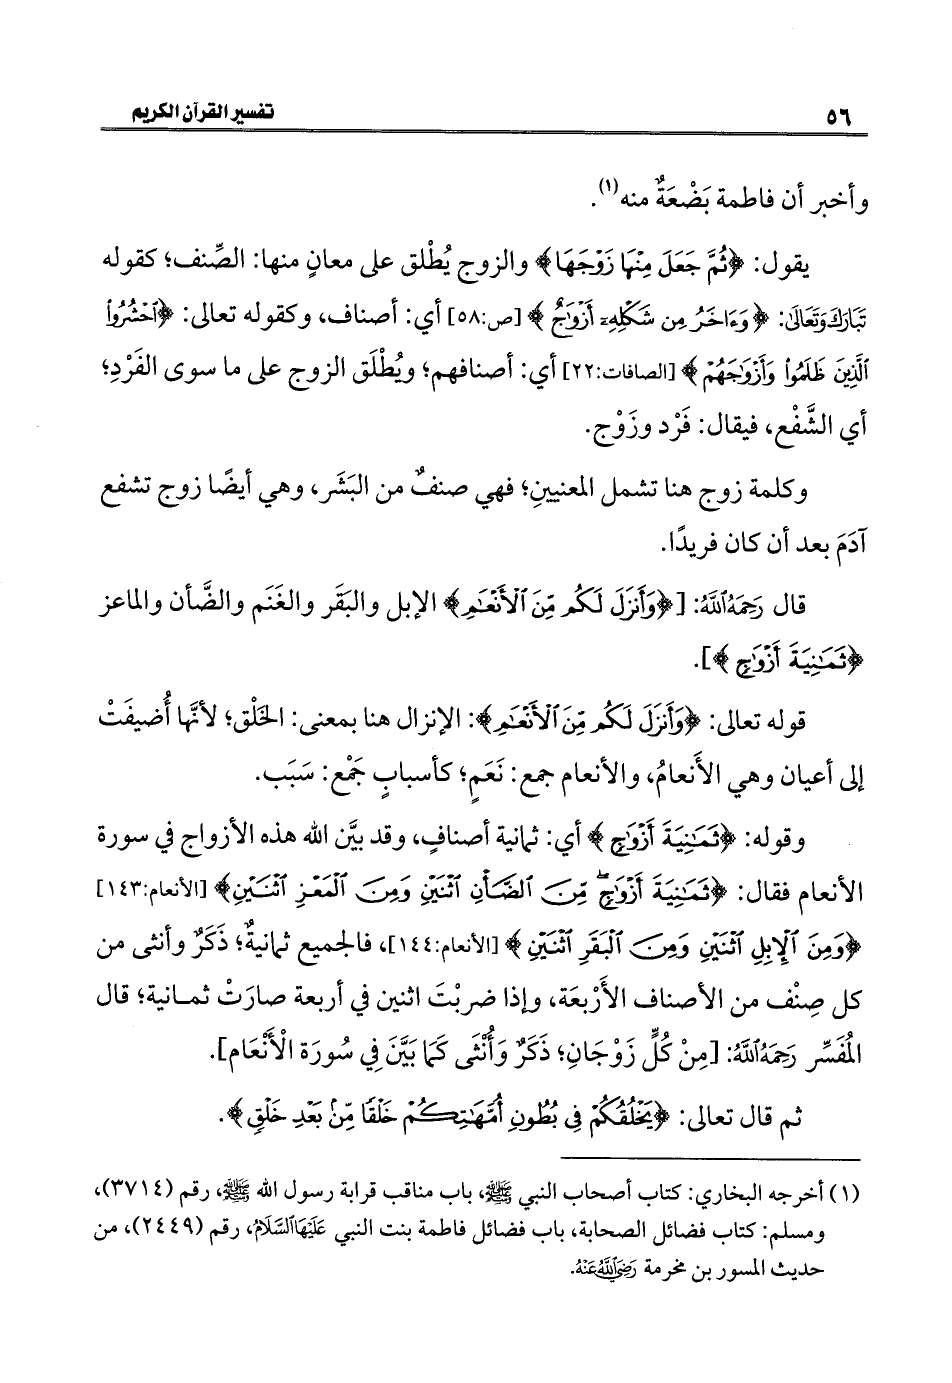 ٥٦
تفسير القرآن الكريم
وأخبر أن فاطمة بَضْعَةٌ منه(١).
يقول: ﴿ثُمَّ جَعَلَ مِنْهَا زَوْجَهَا﴾ والزوج يُطْلق على معانٍ منها: الصِّنف؛ كقوله
تَبَارَكَ وَتَعَالَىٰ: ﴿وَءَاخَرُ مِن شَكْلِهِۦٓ أَزْوَٰجٌ﴾ [ص:٥٨] أي: أصناف، وكقوله تعالى: ﴿ٱحْشُرُوا۟
ٱلَّذِينَ ظَلَمُوا۟ وَأَزْوَٰجَهُمْ﴾ [الصافات:٢٢] أي: أصنافهم؛ ويُطْلَق الزوج على ما سوى الفَرْدِ؛
أي الشَّفْع، فيقال: فَرْد وزَوْج.
وكلمة زوج هنا تشمل المعنيينِ؛ فهي صنفٌ من البَشَر، وهي أيضًا زوج تشفع
آدَمَ بعد أن كان فريدًا.
قال رَحِمَهُ ٱللَّهُ: [﴿وَأَنزَلَ لَكُم مِّنَ ٱلْأَنْعَٰمِ﴾ الإبل والبَقَر والغَنَم والضَّأن والماعز
﴿ثَمَٰنِيَةَ أَزْوَٰجٍ﴾].
قوله تعالى: ﴿وَأَنزَلَ لَكُم مِّنَ ٱلْأَنْعَٰمِ﴾: الإنزال هنا بمعنى: الخَلْق؛ لأنَّها أُضيفَتْ
إلى أعيان وهي الأَنعامُ، والأنعام جمع: نَعَمٍ؛ كأسبابٍ جَمْع: سَبَب.
وقوله: ﴿ثَمَٰنِيَةَ أَزْوَٰجٍ﴾ أي: ثمانية أصنافٍ، وقد بيَّن الله هذه الأزواج في سورة
الأنعام فقال: ﴿ثَمَٰنِيَةَ أَزْوَٰجٍ ۖ مِّنَ ٱلضَّأْنِ ٱثْنَيْنِ وَمِنَ ٱلْمَعْزِ ٱثْنَيْنِ﴾ [الأنعام:١٤٣]
﴿وَمِنَ ٱلْإِبِلِ ٱثْنَيْنِ وَمِنَ ٱلْبَقَرِ ٱثْنَيْنِ﴾ [الأنعام:١٤٤]، فالجميع ثمانيةٌ؛ ذَكَرٌ وأنثى من
كل صِنْف من الأصناف الأَرْبعة، وإذا ضربْتَ اثنين في أربعة صارَتْ ثمانية؛ قال
المُفَسِّر رَحِمَهُ ٱللَّهُ: [مِنْ كُلٍّ زَوْجَانِ؛ ذَكَرٌ وَأُنْثَى كَمَا بَيَّنَ فِي سُورَة الْأَنْعَام].
ثم قال تعالى: ﴿يَخْلُقُكُمْ فِى بُطُونِ أُمَّهَٰتِكُمْ خَلْقًا مِّنۢ بَعْدِ خَلْقٍ﴾.
(١) أخرجه البخاري: كتاب أصحاب النبي ﷺ، باب مناقب قرابة رسول الله ﷺ، رقم (٣٧١٤)،
ومسلم: كتاب فضائل الصحابة، باب فضائل فاطمة بنت النبي عَلَيْهَا ٱلسَّلَامُ، رقم (٢٤٤٩)، من
حديث المسور بن مخرمة رَضِيَ ٱللَّهُ عَنْهُ.